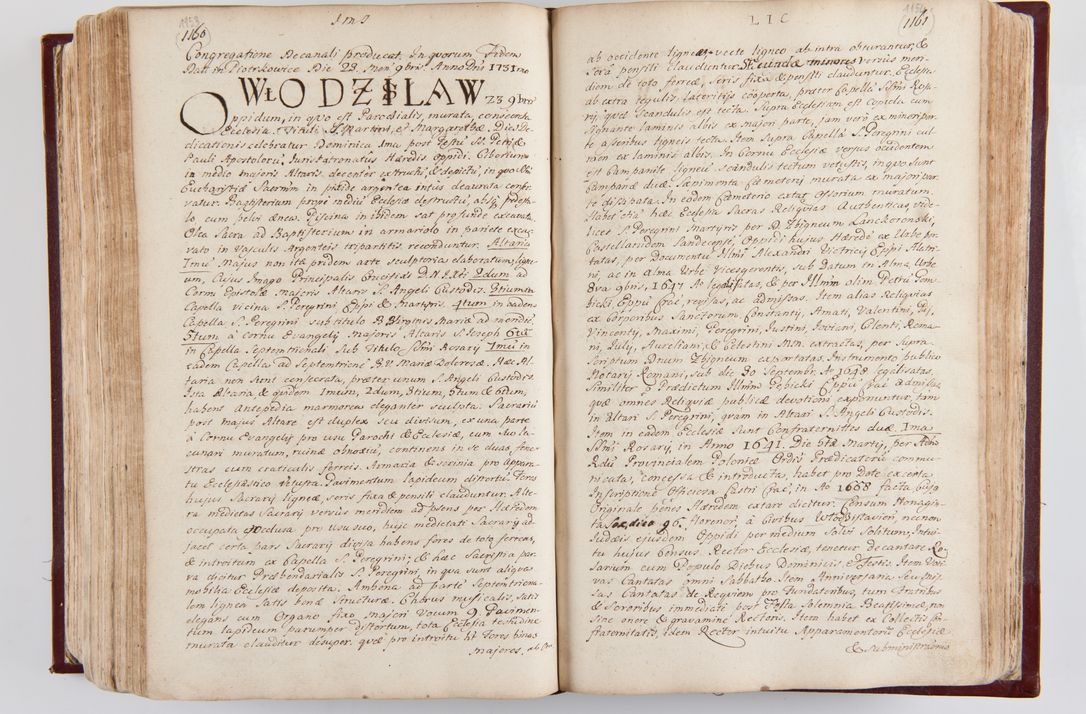 1153
1160
I m S
Congregatione Decanali producet, In quorum Fidem
Datt in Piotrkowice Die 23. mens 9bris Anno Dni 1731mo
WŁODZISLAW 23 9bris
Oppidum, in quo est Parochialis, murata, consecrata
Ecclesia, Tituli S. Martini, & Margarethæ, Dies De
dicationis celebratur Dominica Ima post Festu SS. Petri &
Pauli Apostoloru, Jurispatronatus Hæredis Oppidi. Ciborium
in medio majoris Altaris, decenter extructu, & depictu, in quo SSm
Eucharistiæ Sacrm in pixide argentea intus deaurata conser
vatur. Baptisterium prope mediu Ecclesiæ
lo cum pelvi ænea. Piscina in ibidem sat profunde excavata.
Olea Sacra ad Baptisterium in armariolo in pariete excav
vato in Vasculis Argenteis tripartitis reconduntur. Altaria
Imu Majus non ita pridem arte sculptoria elaboratum, lign
um, Cujus Imago Principalis Crucifixi D.N. JXti 2dum ad
Cornu Epistolæ majoris Altaris S. Angeli Custodis. 3tium in
Capella vicina S. Peregrini Eppi & Martyris. 4tum in eadem
Capella S. Peregrini sub titulo B. Virginis Mariæ ad meridie
5tum à cornu Evangelij majoris Altaris S. Joseph 6tu
in Capella Septentrionali Sub Titulo SSmi Rosarij 7mu in
eadem Capella ad Septemtrione B.V. Mariæ Dolorosæ. Hæc Al
taria non sunt consecrata, præter unum S. Angeli Custodis.
Ista Altaria & quidem Imum, 2dum, 3tium, 5tum & 6tum,
habent antepedia marmorea eleganter sculpta. Sacrariu
post majus Altare est duplex seu divisum, ex una parte
à Cornu Evangelij pro usu Parochi & Ecclesiæ, cum suo la
cunari muratum, ruinæ obnoxiu, continens in se duas fene
stras cum craticulis ferreis. Armaria & scrinia pro appara
tu Ecclesiastico vetusta. Pavimentum lapideum distortu. Fores
hujus Sacrarij ligneæ, seris fixa & pensili clauduntur. Alte
ra medietas Sacrarij versus meridiem ad præsens per Hæredem
occupata & occlusa pro usu suo, huic medietati Sacrarij ad
jacet certa pars Sacrarij divisa habens fores de toto ferreas,
& introitum ex Capella S. Peregrini; & hæc Sacristia par
va dicitur Præbendarialis S. Peregrini, in qua sunt aliqua
mobilia Ecclesiæ deposita. Ambona ad parte Septentriona
lem lignea satis bonæ structuræ. Chorus musicalis, satis
elegans cum Organo fixo majori Vocum 9. Pavimen
tum lapideum parumper distortum, tota Ecclesia testudine
murata clauditur desuper. quæ pro introitu habet Fores binas
majores, ab Oc
1154
1161
L I C
ab occidente ligneas vecte ligneo ab intra obturantur, &
Sera pensili clauduntur. Secundæ minores versus meri-
diem de toto ferreæ, seris fixa & pensili clauduntur. Ecclesia
ab extra tegulis lateritijs cooperta, præter Capella SSmi Rosa
rij, quæ Scandulis est tecta. Supra Ecclesiam est Copiola cum
Signante laminis albis ex majori parte, jam vero ex minori par
te asseribus ligneis tecta. Item Supra Capella S. Peregrini cul
men ex laminis albis. In Cornu Ecclesiæ versus occidentem
est Campanile ligneu scandulis tectum vetustis, in quo sunt
Campanæ duæ. Sæpimenta Cæmeterij murata ex majori par
te dissipata. In eodem Cæmeterio extat Ossorium muratum.
Habet etia hæc Ecclesia Sacras Reliquias Authenticas, vide
licet S. Peregrini Martyris per D. Zbigneum Lanckoronski,
Castellanidem Sandecensem, Oppidi hujus Hærede ex Urbe por
tatas, per Documentu Illmi Alexandri Victricij Eppi Alatri
ni, ac in Alma Urbe Vicesgerentis, sub Datum in Alma Urbe
8va 9bris, 1647 Ao legalisatas, & per Illmm olim Petru Gem
bicki Eppu Crac. revisas, ac admissas. Item alias Reliquias
ex Corporibus Sanctorum Constantij, Amati, Valentini, Pij,
Vincentij, Maximi, Peregrini, Justini, Joviani, Clenti, Roma
ni, Julij, Aureliani, & Celestini Mm. extractas, per Supra
Scriptum Dnum Zbigneum exportatas, Instrumento publico
Notarij Romani, sub die 30 Septembr. Ao 1648 legalisatas,
Similiter à Prædictum Illmm Gębicki Eppu Crac admissas,
quæ omnes Reliquiæ publicæ devotioni exponuntur, tam
in Altari S. Peregrini, quam in Altari S. Angeli Custodis.
Item in eadem Ecclesia Sunt Confraternitates duæ, Ima
SSmi Rosarij, in Anno 1641. Die 6tæ Martij, per Admo
Rdu Provincialem Poloniæ Ordis Prædicatoru commu
nicata, concessa & introducta, habet pro Dote ex certa
Inscriptione Officiosa Castri Crac, in Ao 1688 facta cujus
Originale penes Hæredem extare dicitur. Censum Monagin
ta Sexdica 90. Florenor, à Civibus Włodzislavien, necnon
Judæis ejusdem Oppidi per medium Salvi solitum, Intui
tu hujus Census. Rector Ecclesiæ, tenetur decantare Ro
sarium cum Populo Diebus Dominicis, & Festis. Item Voti
vas Cantatas omni Sabbatho. Item Anniversaria, seu Mis
sas Cantatas de Requiem pro Fundatoribus, tum Fratribus
& Sororibus immediati post Festa Solemnia Beatissimæ, non
sine onere & gravamine Rectoris. Item habet ex Collectis Co
fraternitatis, idem Rector intuitu Apparamentoru Ecclesiæ
& subministrationis